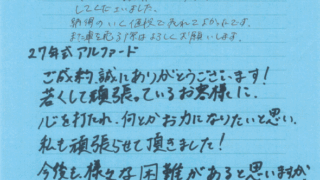 してくださいました。
納得のいく価格で売れてよかったです。
また車を売る際はよろしくお願いします。
27年式アルファード
ご成約、誠にありがとうございます！
若くして頑張っているお客様に、
心を打たれ、何とかお力になりたいと思い、
私も頑張らせて頂きました！
今後も、様々な困難があると思いますが